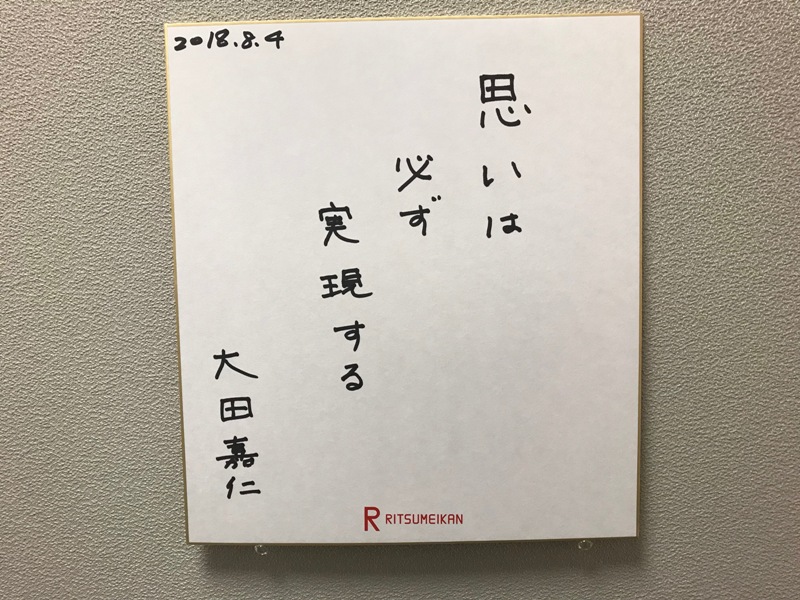 2018.8.4
思いは
必ず
実現する
大田嘉仁
R RITSUMEIKAN